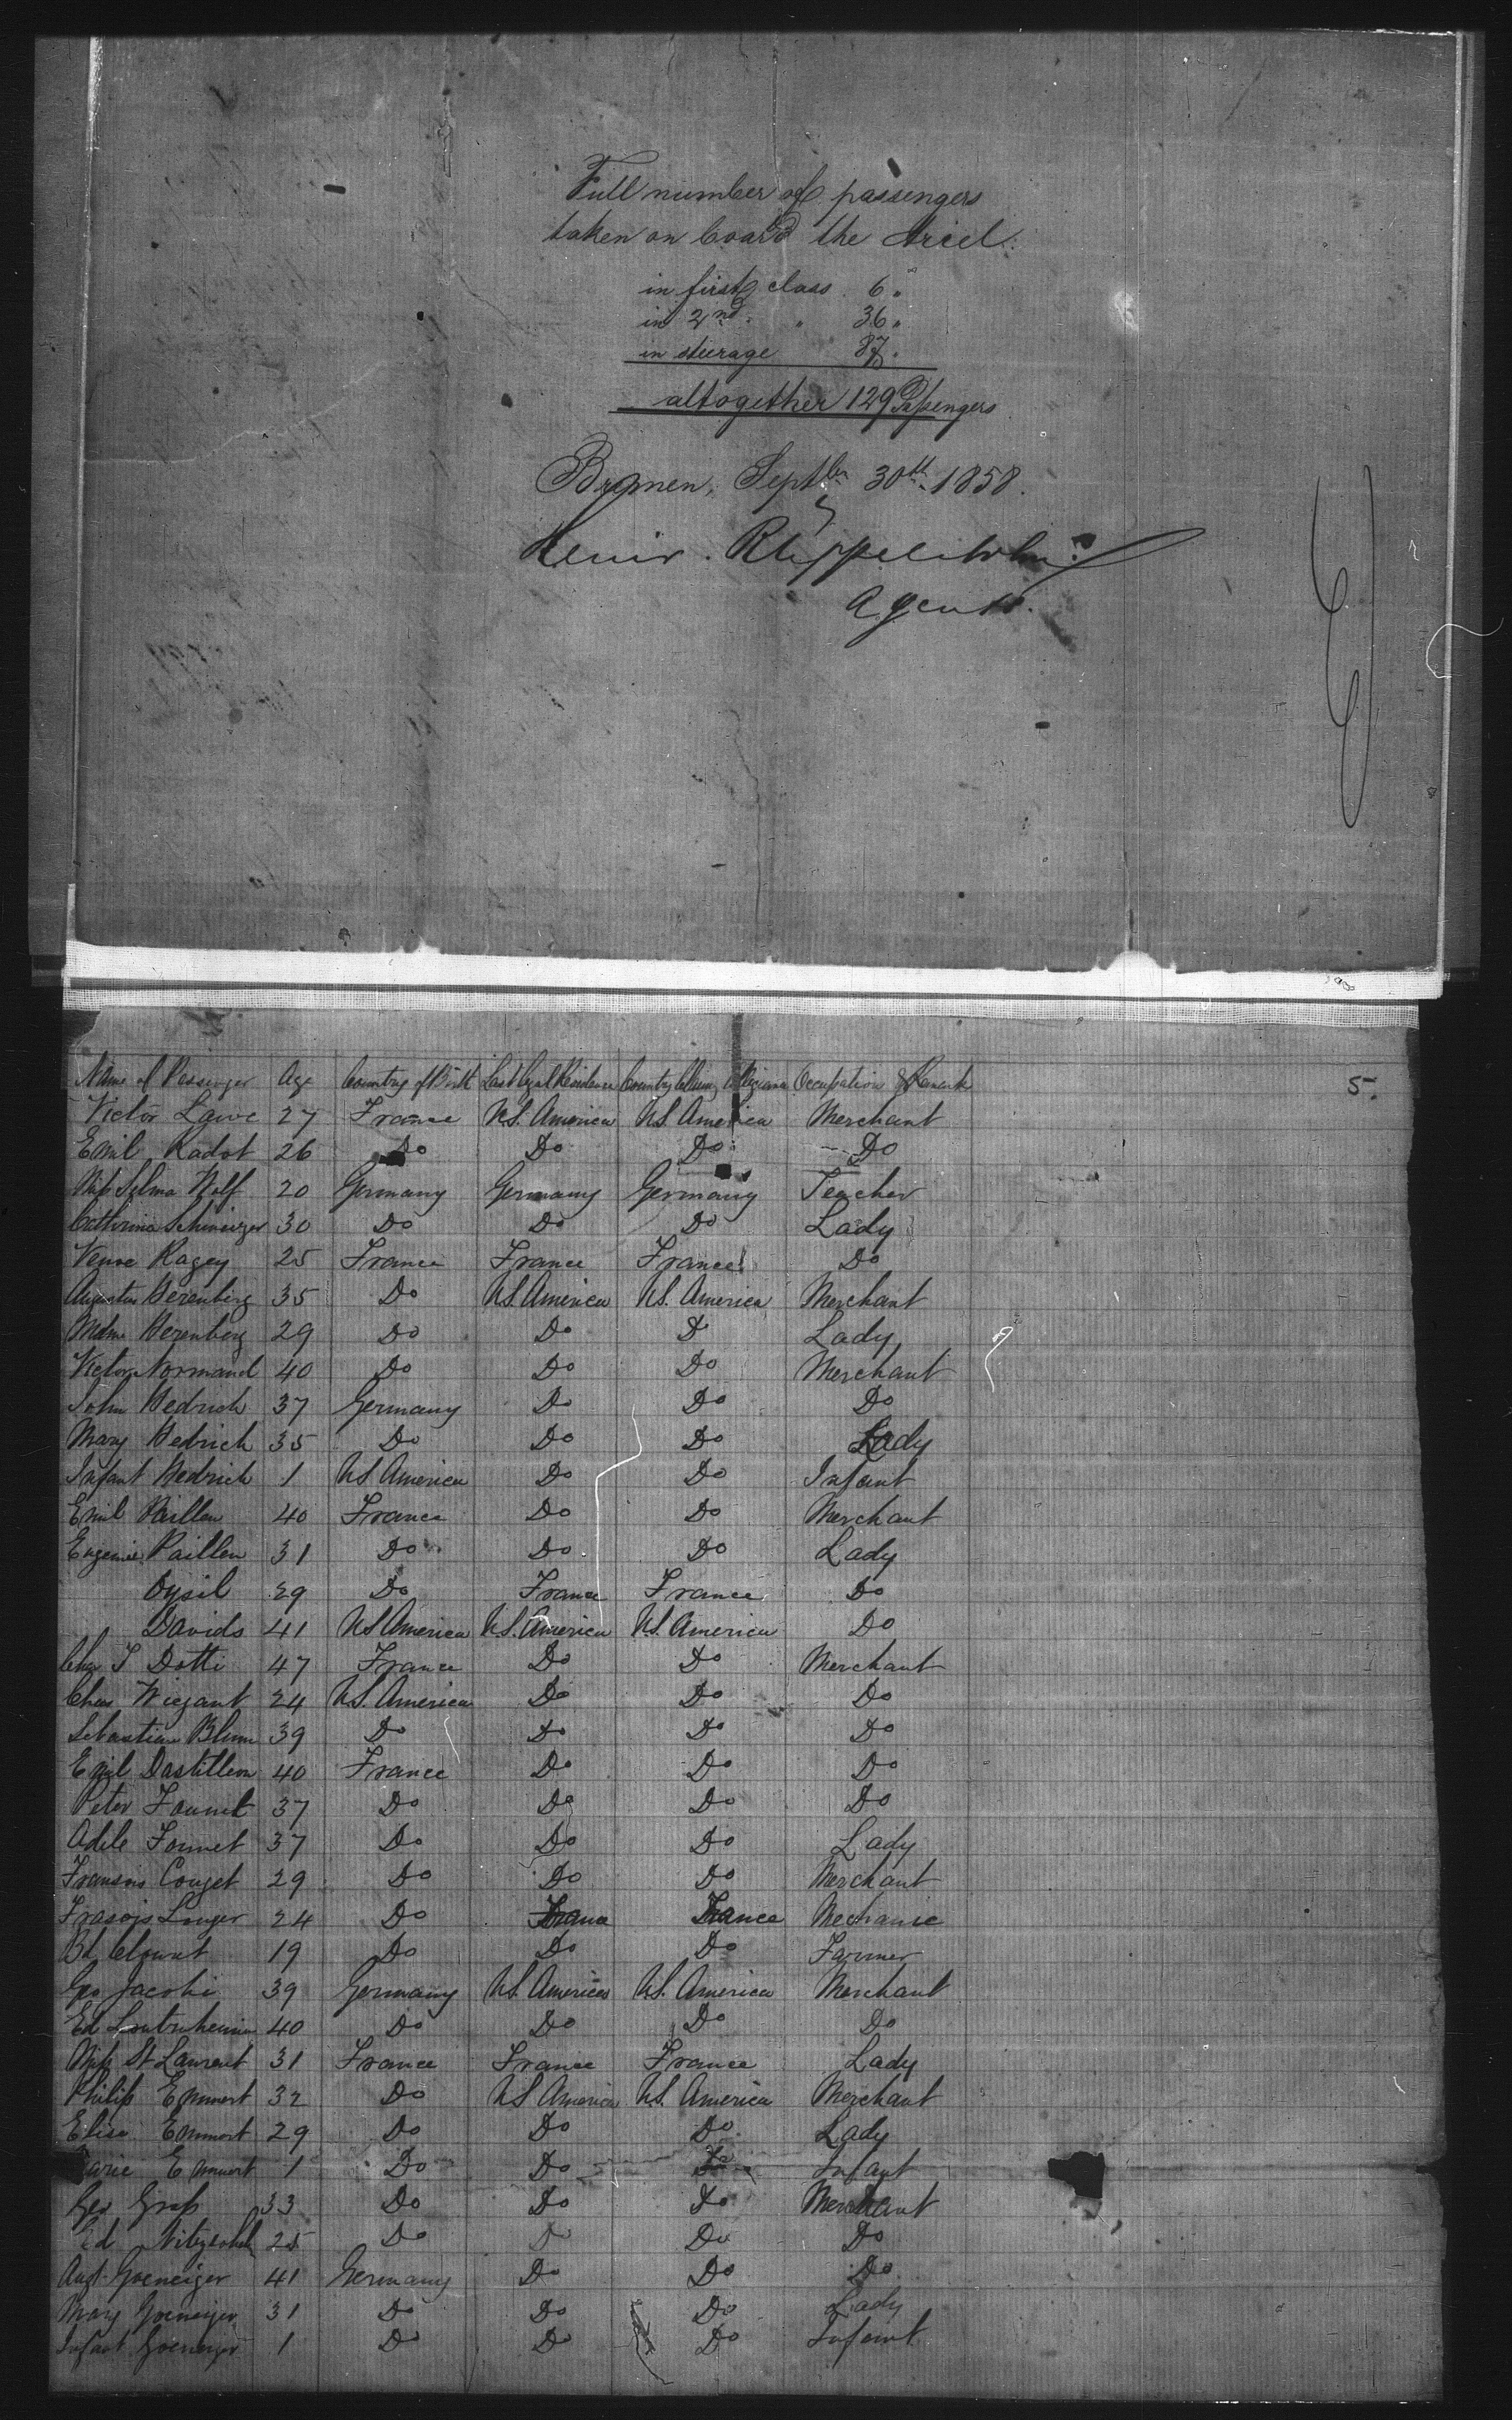 Full number of passengers
taken on board the Ariel.
in first class 6 "
in 2nd " 36 "
in steerage 87.
altogether 129 Passengers
Bremen, Septbr 30th 1858.
Agents.
5.
Name of Passenger Age Country of Birth Last legal Residence Country Occupation & Remark
Victor Lawe 27 France U.S. America U.S. America Merchant
Emil Kadot 26 Do Do Do Do
Miss Selma Wolf 20 Germany Germany Germany Teacher
Cathrina Schweizer 30 Do Do Do Lady
Veuve Ragey 25 France France France Do
Augustus Herenberg 35 Do U.S. America U.S. America Merchant
Mdme Herenberg 29 Do Do D Lady
Victor Normand 40 Do Do Do Merchant
John Hedrich 37 Germany Do Do Do
Mary Hedrich 35 Do Do Do Lady
Infant Hedrich 1 US America Do Do Infant
Emil Paillen 40 France Do Do Merchant
Eugenie Paillen 31 Do Do Do Lady
Oysil 29 Do France France Do
Davids 41 US America U.S. America U.S. America Do
Chas J Dotti 47 France Do Do Merchant
Chas Wiegant 24 U.S. America Do Do Do
Sebastian Blum 39 Do Do Do Do
Emil Dastillon 40 France Do Do Do
Peter Fournet 37 Do Do Do Do
Adele Fournet 37 Do Do Do Lady
Fransois Couget 29 Do Do Do Merchant
Frasois Linger 24 Do France France Mechanic
Bd 19 Do Do Do Farmer
Geo Jacobi 39 Germany U.S. America U.S. America Merchant
Ed 40 Do Do Do Do
Miss St Laurent 31 France France France Lady
Philip Emmert 32 Do US America U.S. America Merchant
Elise Emmert 29 Do Do Do Lady
Marie Emmert 1 Do Do Do Infant
Geo Grass 33 Do Do Do Merchant
Ed 25 Do Do Do Do
Augt Goeneiger 41 Germany Do Do Do
Mary Goeneiger 31 Do Do Do Lady
Infant Goeneiger 1 Do Do Do Infant